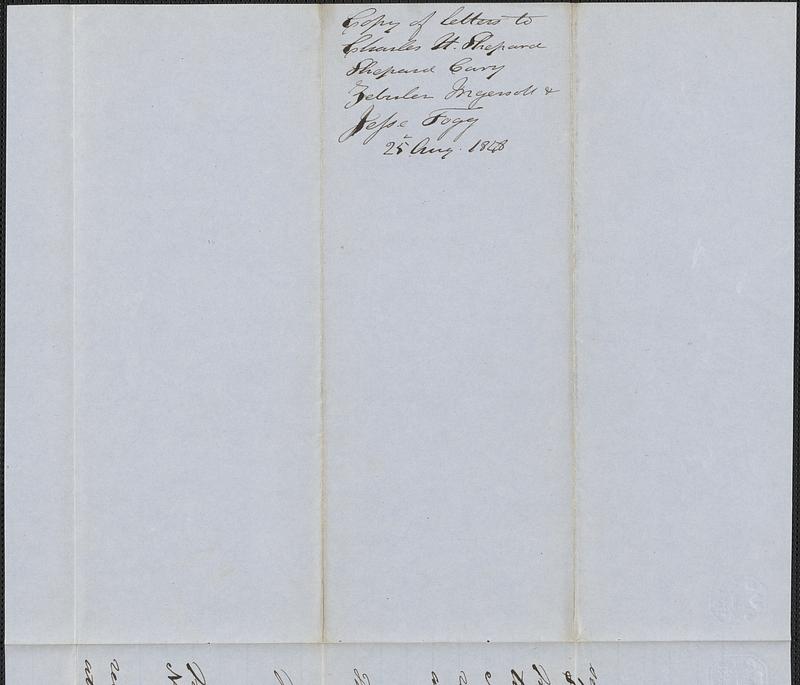 Copy of letters to
Charles H. Shepard
Shepard Cary
Zebulon Ingersoll &
Jesse Fogg
25 Aug. 1848